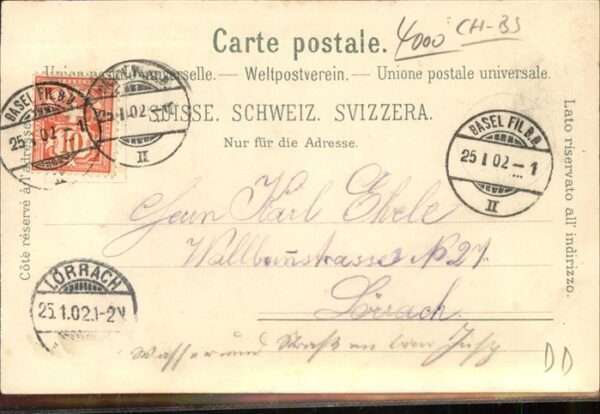 Carte postale. 4000 CH-BS
Union postale universelle. — Weltpostverein. — Unione postale universale.
SUISSE. SCHWEIZ. SVIZZERA.
Nur für die Adresse.
Côté réservé à l'adresse.
Lato riservato all' indirizzo.
BASEL FIL. B.B.
25.I.02.-1
II
10
25.I.02.-1
II
BASEL FIL. B.B.
25.I.02.-1
II
Herrn Karl Ehrle
Wallbrunnstrasse No 27.
Lörrach.
LÖRRACH
25.1.02.1-2N
Wasser und
DD